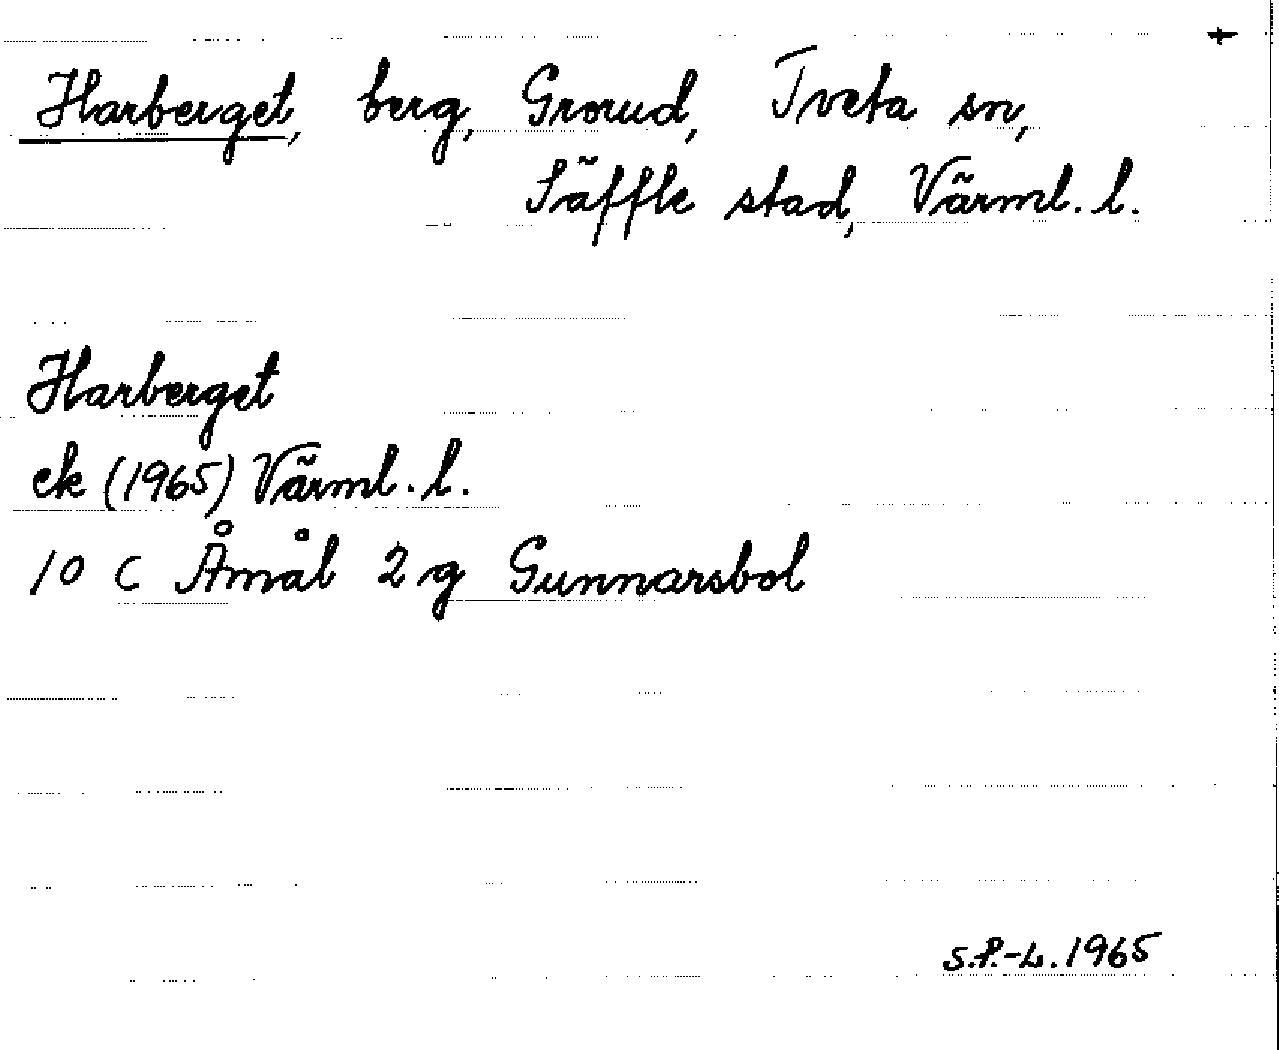 +
Harberget, berg, Grorud, Tveta sn,
Säffle stad, Värml. l.
Harberget
ek (1965) Värml. l.
10 C Åmål 2 g Gunnarsbol
S.P.-L. 1965